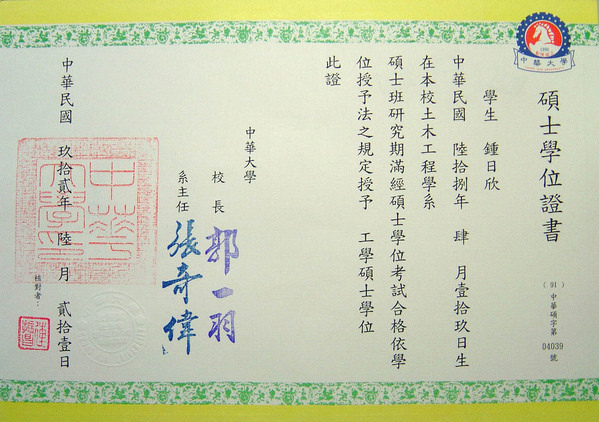 中華大學
碩士學位證書
(91)中華碩字第04039號
學生 鍾日欣
中華民國 陸拾捌年 肆 月壹拾玖日生
在本校土木工程學系
碩士班研究期滿經碩士學位考試合格依學
位授予法之規定授予 工學碩士學位
此證
中華大學
校長 郭一羽
系主任 張奇偉
中華大學印
中華民國 玖拾貳年 陸 月 貳拾壹日
核對者：